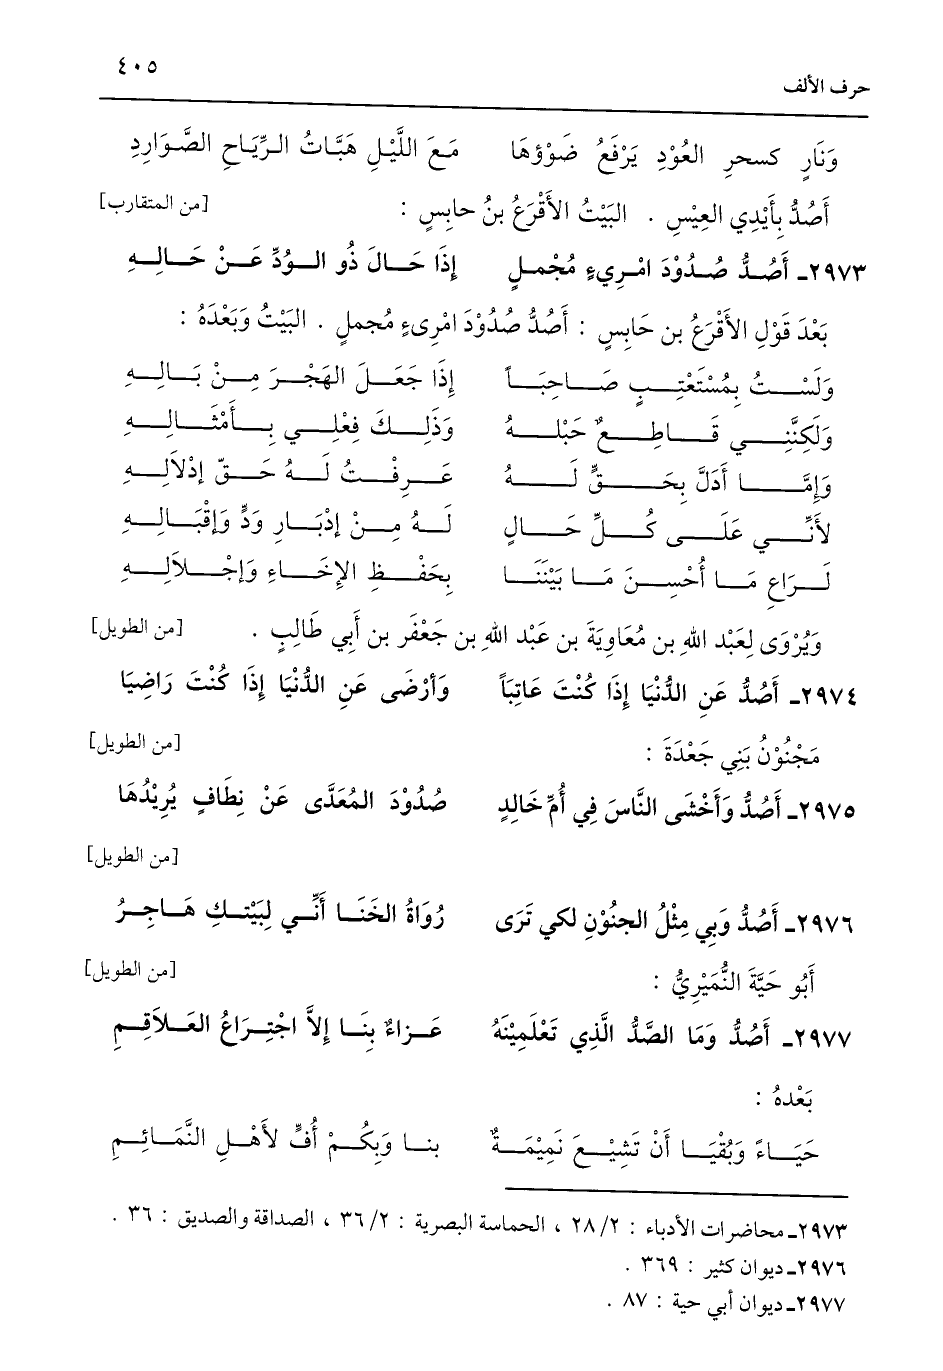 ٤٠٥
حرف الألف
وَنَارٍ كسحرِ العُوْدِ يَرْفَعُ ضَوْؤهَا مَعَ اللَّيْلِ هَبَّاتُ الرِّيَاحِ الصَّوَارِدِ
أَصُدُّ بِأَيْدِي العِيْسِ . البَيْتُ الأَقْرَعُ بنُ حابِسٍ : [من المتقارب]
٢٩٧٣ـ أَصُدُّ صُدُوْدَ امْرِيءٍ مُجْملٍ إِذَا حَالَ ذُو الوُدِّ عَنْ حَالِهِ
بَعْدَ قَوْلِ الأَقْرَعُ بن حَابِسٍ : أَصُدُّ صُدُوْدَ امْرِىءٍ مُجملٍ . البَيْتُ وَبَعْدَهُ :
وَلَسْتُ بِمُسْتَعْتِبٍ صَاحِبَاً إِذَا جَعَلَ الهَجْرَ مِنْ بَالِهِ
وَلَكِنَّنِي قَاطِعٌ حَبْلهُ وَذَلِكَ فِعْلِي بِأَمْثَالِهِ
وَإِمَّا أَدَلَّ بِحَقٍّ لَهُ عَرِفْتُ لَهُ حَقّ إِدْلاَلِهِ
لأَنِّي عَلَى كُلِّ حَالٍ لَهُ مِنْ إِدْبَارِ وَدٍّ وَإِقْبَالِهِ
لَرَاعٍ مَا أُحْسِنَ مَا بَيْنَنَا بِحَفْظِ الإِخَاءِ وَإِجْلاَلِهِ
وَيُرْوَى لِعَبْد اللهِ بن مُعَاوِيَةَ بن عَبْد اللهِ بن جَعْفَر بن أَبِي طَالِبٍ . [من الطويل]
٢٩٧٤ـ أَصُدُّ عَنِ الدُّنْيَا إِذَا كُنْتَ عَاتِبَاً وَأَرْضَى عَنِ الدُّنْيَا إِذَا كُنْتَ رَاضِيَا
مَجْنُوْنُ بَنِي جَعْدَةَ : [من الطويل]
٢٩٧٥ـ أَصُدُّ وَأَخْشَى النَّاسَ فِي أُمِّ خَالِدٍ صُدُوْدَ المُعَدَّى عَنْ نِطَافٍ يُرِيْدُهَا
[من الطويل]
٢٩٧٦ـ أَصُدُّ وَبِي مِثْلُ الجنُوْنِ لكي تَرَى رُوَاةُ الخَنَا أَنَّي لِبَيْتكِ هَاجِرُ
أَبُو حَيَّةَ النُّمَيْرِيُّ : [من الطويل]
٢٩٧٧ـ أَصُدُّ وَمَا الصَّدُّ الَّذِي تَعْلَمِيْنَهُ عَزاءٌ بِنَا إِلاَّ اجْتِرَاعُ العَلاَقِمِ
بَعْدهُ :
حَيَاءً وَبُقْيَا أَنْ تَشِيْعَ نَمِيْمَةٌ بنا وَبِكُمْ أُفٍّ لأَهْلِ النَّمَائِمِ
٢٩٧٣ـ محاضرات الأدباء : ٢/ ٢٨ ، الحماسة البصرية : ٢/ ٣٦ ، الصداقة والصديق : ٣٦ .
٢٩٧٦ـ ديوان كثير : ٣٦٩ .
٢٩٧٧ـ ديوان أبي حية : ٨٧ .